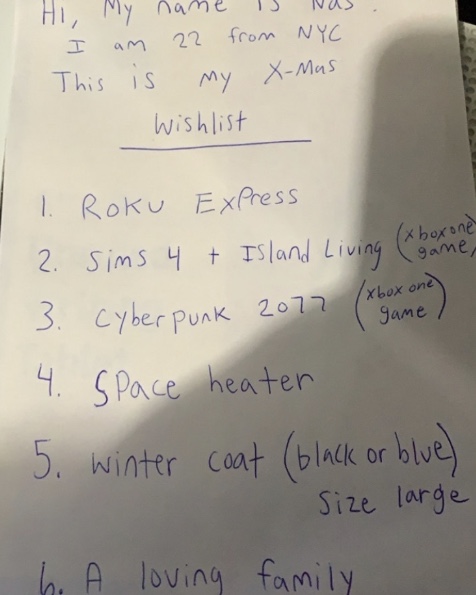 Hi, My name is Nas.
I am 22 from NYC
This is my X-Mas
Wishlist
1. Roku Express
2. Sims 4 + Island Living (xbox one game)
3. Cyberpunk 2077 (xbox one game)
4. Space heater
5. winter coat (black or blue)
Size large
6. A loving family